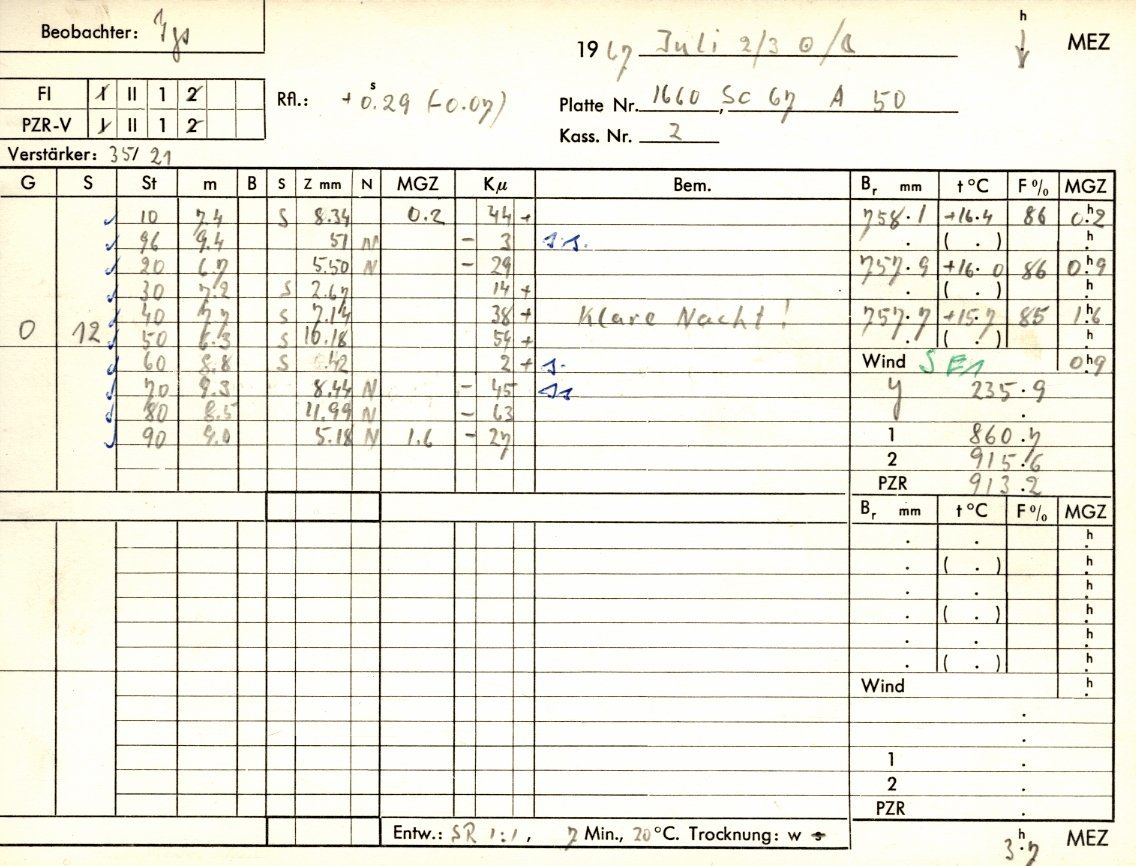 Beobachter:
h
19 67 Juli 2/3 MEZ
FI I II 1 2
PZR-V I II 1 2
Rfl.: + 0.29 (-0.07)
s
Platte Nr. 1660, Sc 67 A 50
Kass. Nr. 2
Verstärker: 35/ 21
G S St m B S Z mm N MGZ Kμ Bem. Br mm t °C F% MGZ
10 7.4 S 8.34 0.2 44 + 758.1 +16.4 86 0h.2
96 9.4 51 N - 3 s.s. . ( . ) h.
20 6.7 5.50 N - 29 757.9 +16.0 86 0h.9
30 7.2 S 2.67 14 + . ( . ) h.
40 7.7 S 7.14 38 + Klare Nacht! 757.7 +15.7 85 1h.6
0 12 50 6.3 S 10.18 54 + . ( . ) h.
60 8.8 S 42 2 + s. Wind SE1 0h.9
70 9.3 8.44 N - 45 ss y 235.9
80 8.5 11.99 N - 63 .
90 9.0 5.18 N 1.6 - 27 1 860.7
2 915.6
PZR 913.2
Br mm t °C F% MGZ
. . h.
. ( . ) h.
. . h.
. ( . ) h.
. . h.
. ( . ) h.
Wind h.
.
.
1 .
2 .
PZR .
Entw.: SR 1:1, 7 Min., 20 °C. Trocknung: w s
3h.7 MEZ